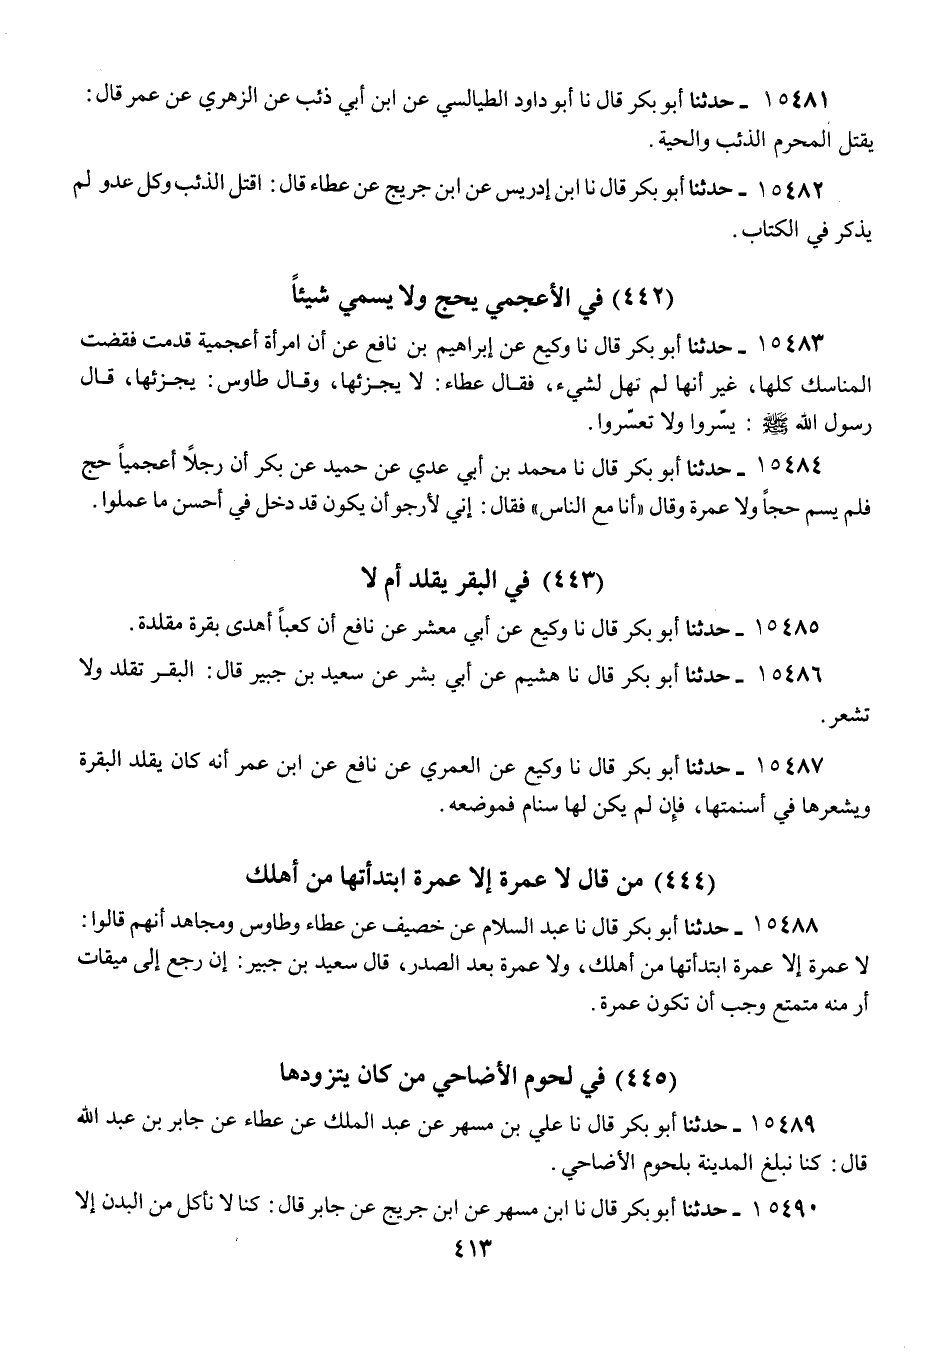 ١٥٤٨١ ـ حدثنا أبو بكر قال نا أبو داود الطيالسي عن ابن أبي ذئب عن الزهري عن عمر قال:
يقتل المحرم الذئب والحية.
١٥٤٨٢ ـ حدثنا أبو بكر قال نا ابن إدريس عن ابن جريج عن عطاء قال: اقتل الذئب وكل عدو لم
يذكر في الكتاب.
(٤٤٢) في الأعجمي يحج ولا يسمي شيئاً
١٥٤٨٣ ـ حدثنا أبو بكر قال نا وكيع عن إبراهيم بن نافع عن أن امرأة أعجمية قدمت فقضت
المناسك كلها، غير أنها لم تهل لشيء، فقال عطاء: لا يجزئها، وقال طاوس: يجزئها، قال
رسول الله ﷺ : يسّروا ولا تعسّروا.
١٥٤٨٤ ـ حدثنا أبو بكر قال نا محمد بن أبي عدي عن حميد عن بكر أن رجلاً أعجمياً حج
فلم يسم حجاً ولا عمرة وقال «أنا مع الناس» فقال: إني لأرجو أن يكون قد دخل في أحسن ما عملوا.
(٤٤٣) في البقر يقلد أم لا
١٥٤٨٥ ـ حدثنا أبو بكر قال نا وكيع عن أبي معشر عن نافع أن كعباً أهدى بقرة مقلدة.
١٥٤٨٦ ـ حدثنا أبو بكر قال نا هشيم عن أبي بشر عن سعيد بن جبير قال: البقر تقلد ولا
تشعر.
١٥٤٨٧ ـ حدثنا أبو بكر قال نا وكيع عن العمري عن نافع عن ابن عمر أنه كان يقلد البقرة
ويشعرها في أسنمتها، فإن لم يكن لها سنام فموضعه.
(٤٤٤) من قال لا عمرة إلا عمرة ابتدأتها من أهلك
١٥٤٨٨ ـ حدثنا أبو بكر قال نا عبد السلام عن خصيف عن عطاء وطاوس ومجاهد أنهم قالوا:
لا عمرة إلا عمرة ابتدأتها من أهلك، ولا عمرة بعد الصدر، قال سعيد بن جبير: إن رجع إلى ميقات
أر منه متمتع وجب أن تكون عمرة.
(٤٤٥) في لحوم الأضاحي من كان يتزودها
١٥٤٨٩ ـ حدثنا أبو بكر قال نا علي بن مسهر عن عبد الملك عن عطاء عن جابر بن عبد الله
قال: كنا نبلغ المدينة بلحوم الأضاحي.
١٥٤٩٠ ـ حدثنا أبو بكر قال نا ابن مسهر عن ابن جريج عن جابر قال: كنا لا نأكل من البدن إلا
٤١٣